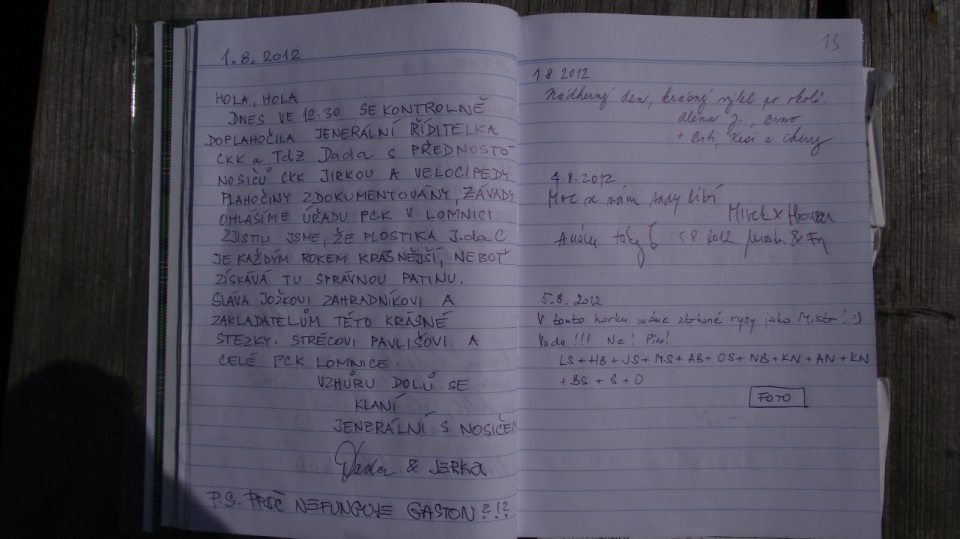 1.8.2012
HOLA, HOLA
DNES VE 12:30 SE KONTROLNĚ
DOPLAHOČILA JENERÁLNÍ ŘÍDITELKA
CKK a TdZ Dada S PŘEDNOSTO
NOSIČŮ CKK JIRKOU A VELOCIPEDY.
PLAHOČINY ZDOKUMENTOVÁNY, ZÁVADY
OHLÁSÍME ÚŘADU PCK V LOMNICI.
ZJISTILI JSME, ŽE PLOSTIKA J.da C.
JE KAŽDÝM ROKEM KRÁSNĚJŠÍ, NEBOŤ
ZÍSKÁVÁ TU SPRÁVNOU PATINU.
SLÁVA JOŽKOVI ZAHRADNÍKOVI A
ZAKLADATELŮM TÉTO KRÁSNÉ
STEZKY. STRÉCOVI PAVLIŠOVI A
CELÉ PCK LOMNICE.
VZHŮRU DOLŮ SE
KLANÍ
JENERÁLNÍ S NOSIČEM
Dada & JERKA
P.S. PROČ NEFUNGUJE GASTON?!?
13
1.8 2012
Nádherný den, krásný výlet po okolí.
Alena J., Brno
+ Brit, Kesi a Chery
4.8.2012
Moc se nám tady líbí
Mirek
taky 5.8.2012
5.8.2012
V tomto horku máme ztrhané rysy jako Mistr! :-)
Vodu!!! Ne! Pivo!
LS + HB + JS + MS + AB + OS + NB + KN + AN + KN
+ BS + S + O
FOTO